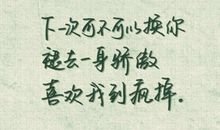 下一次可不可以换你
褪去一身骄傲
喜欢我到疯掉.